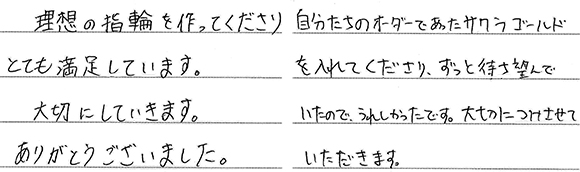 理想の指輪を作ってくださり
とても満足しています。
大切にしていきます。
ありがとうございました。
自分たちのオーダーであったサクラゴールド
を入れてくださり、ずっと待ち望んで
いたので、うれしかったです。大切につけさせて
いただきます。